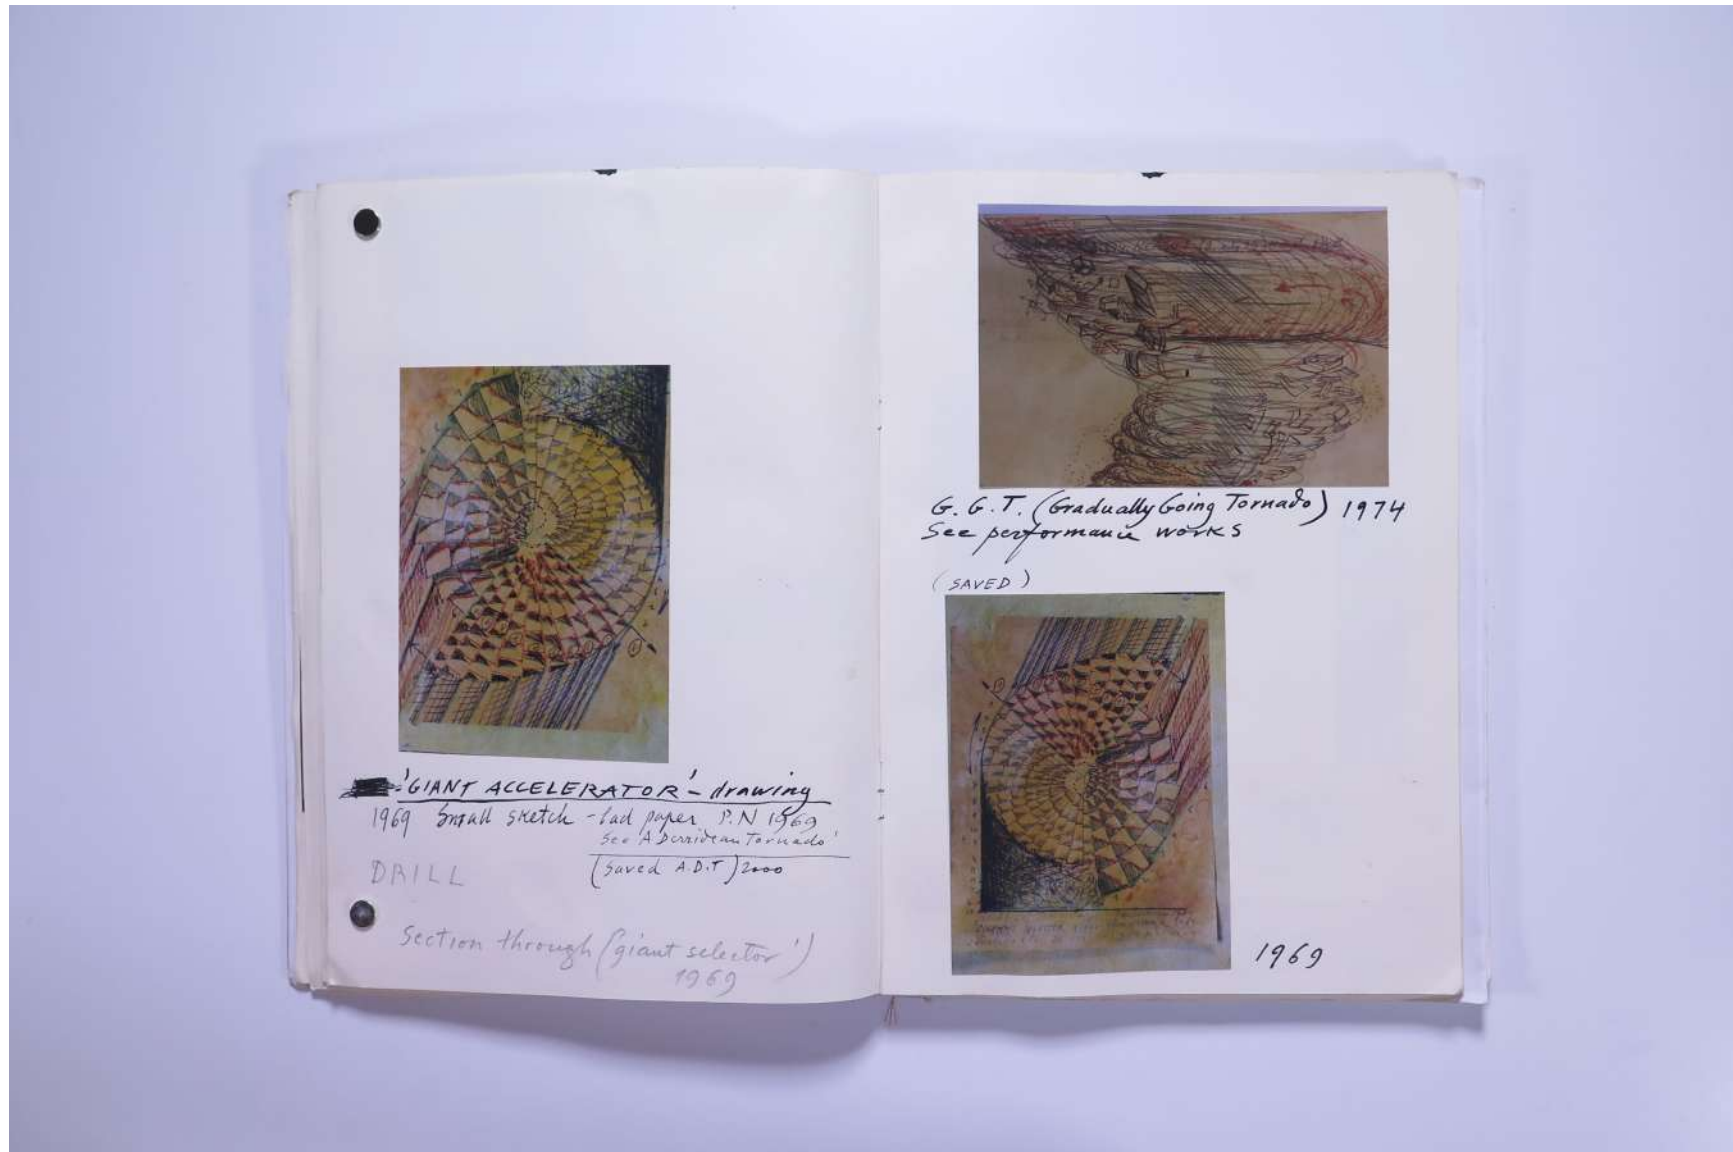 'GIANT ACCELERATOR' - drawing
1969 Small sketch - bad paper P.N 1969
See 'A Derridean Tornado'
(Saved A.D.T) 2000
DRILL
Section through (giant selector')
1969
G.G.T. (Gradually Going Tornado) 1974
See performance works
(SAVED)
1969